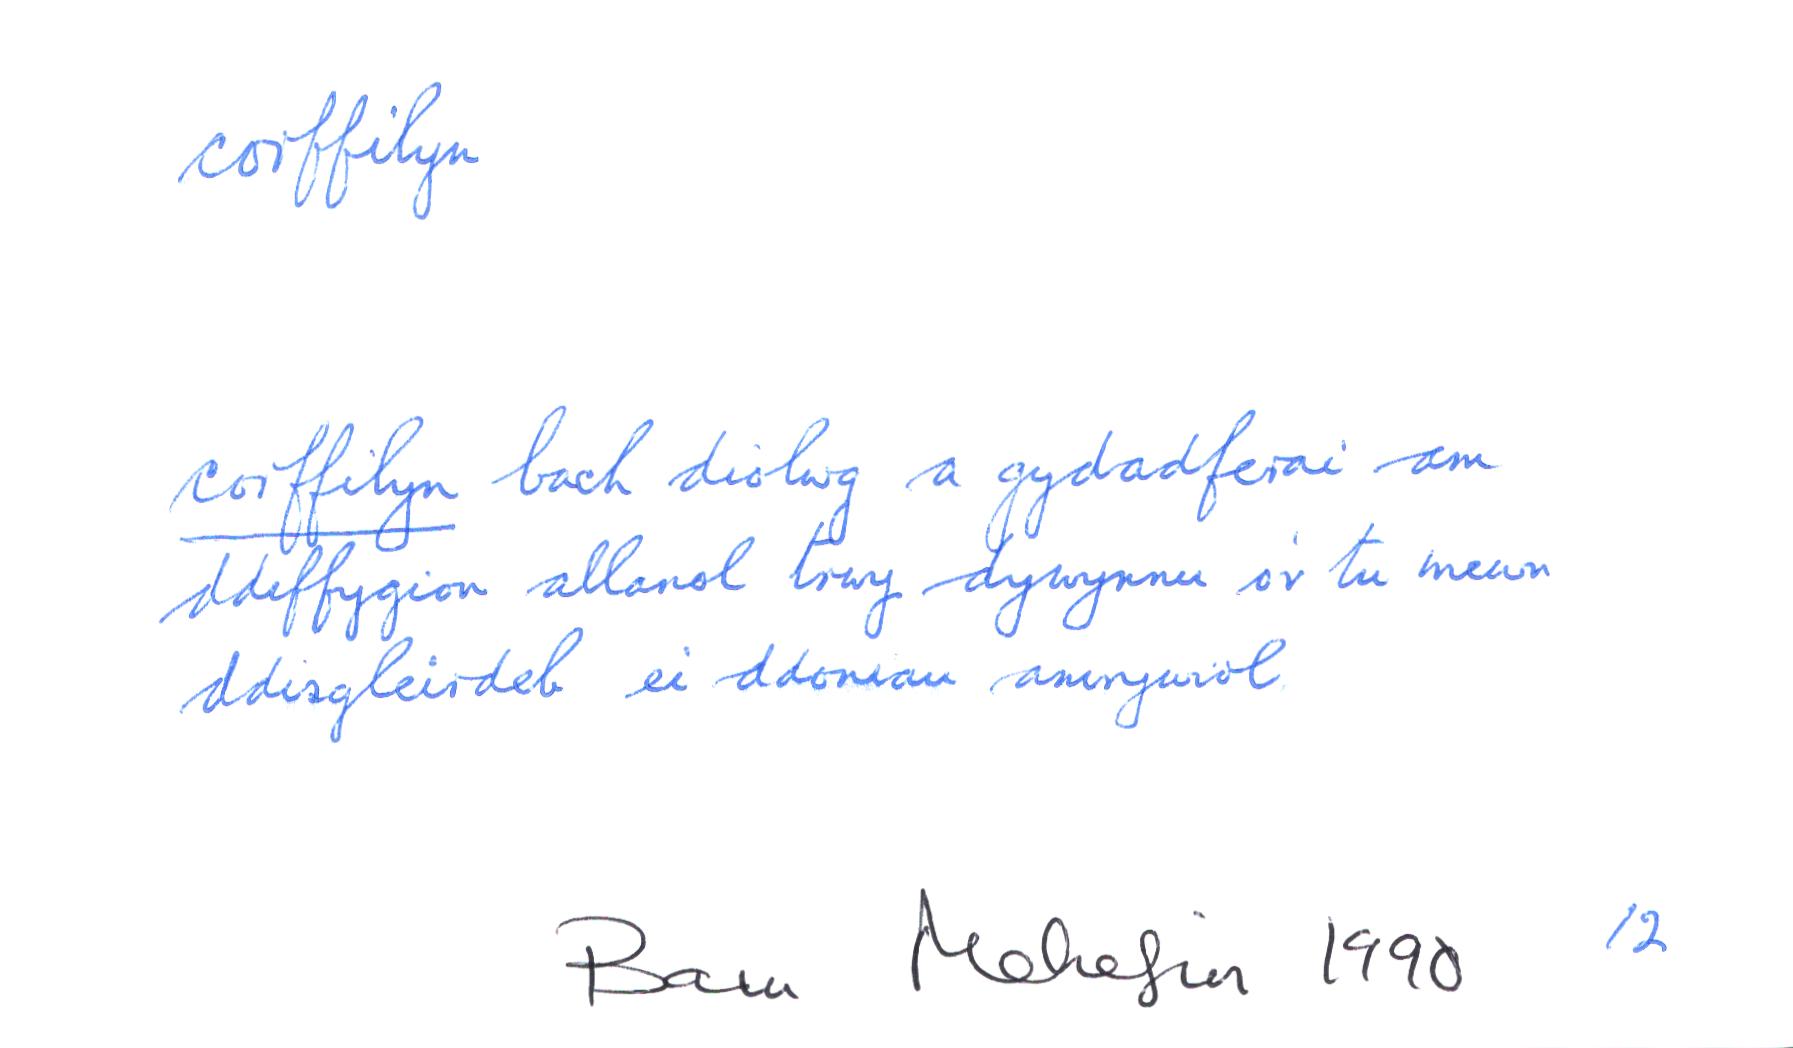 corffilyn
corffilyn bach diolwg a gydadferai am
ddeffygion allanol trwy dywynnu o'r tu mewn
ddisgleirdeb ei ddoniau amrywiol
Barn Mehefin 1990 12